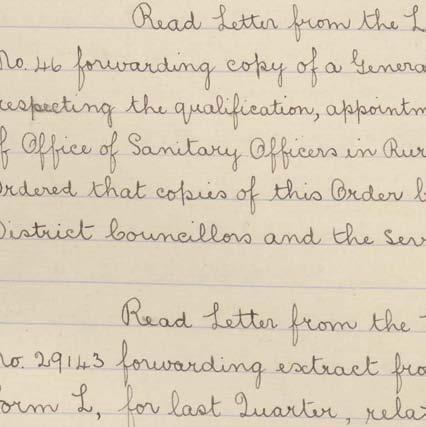 Read Letter from the L
No. 46 forwarding copy of a Genera
respecting the qualification, appointm
f Office of Sanitary Officers in Rur
ordered that copies of this Order b
District Councillors and the Serv
Read Letter from the
No. 29143 forwarding extract fro
orm L, for last Quarter, rela